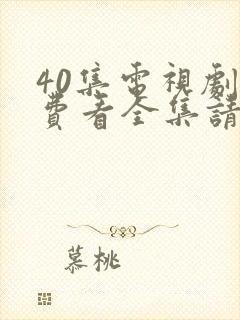 40集電視劇
費看全集請
慕桃